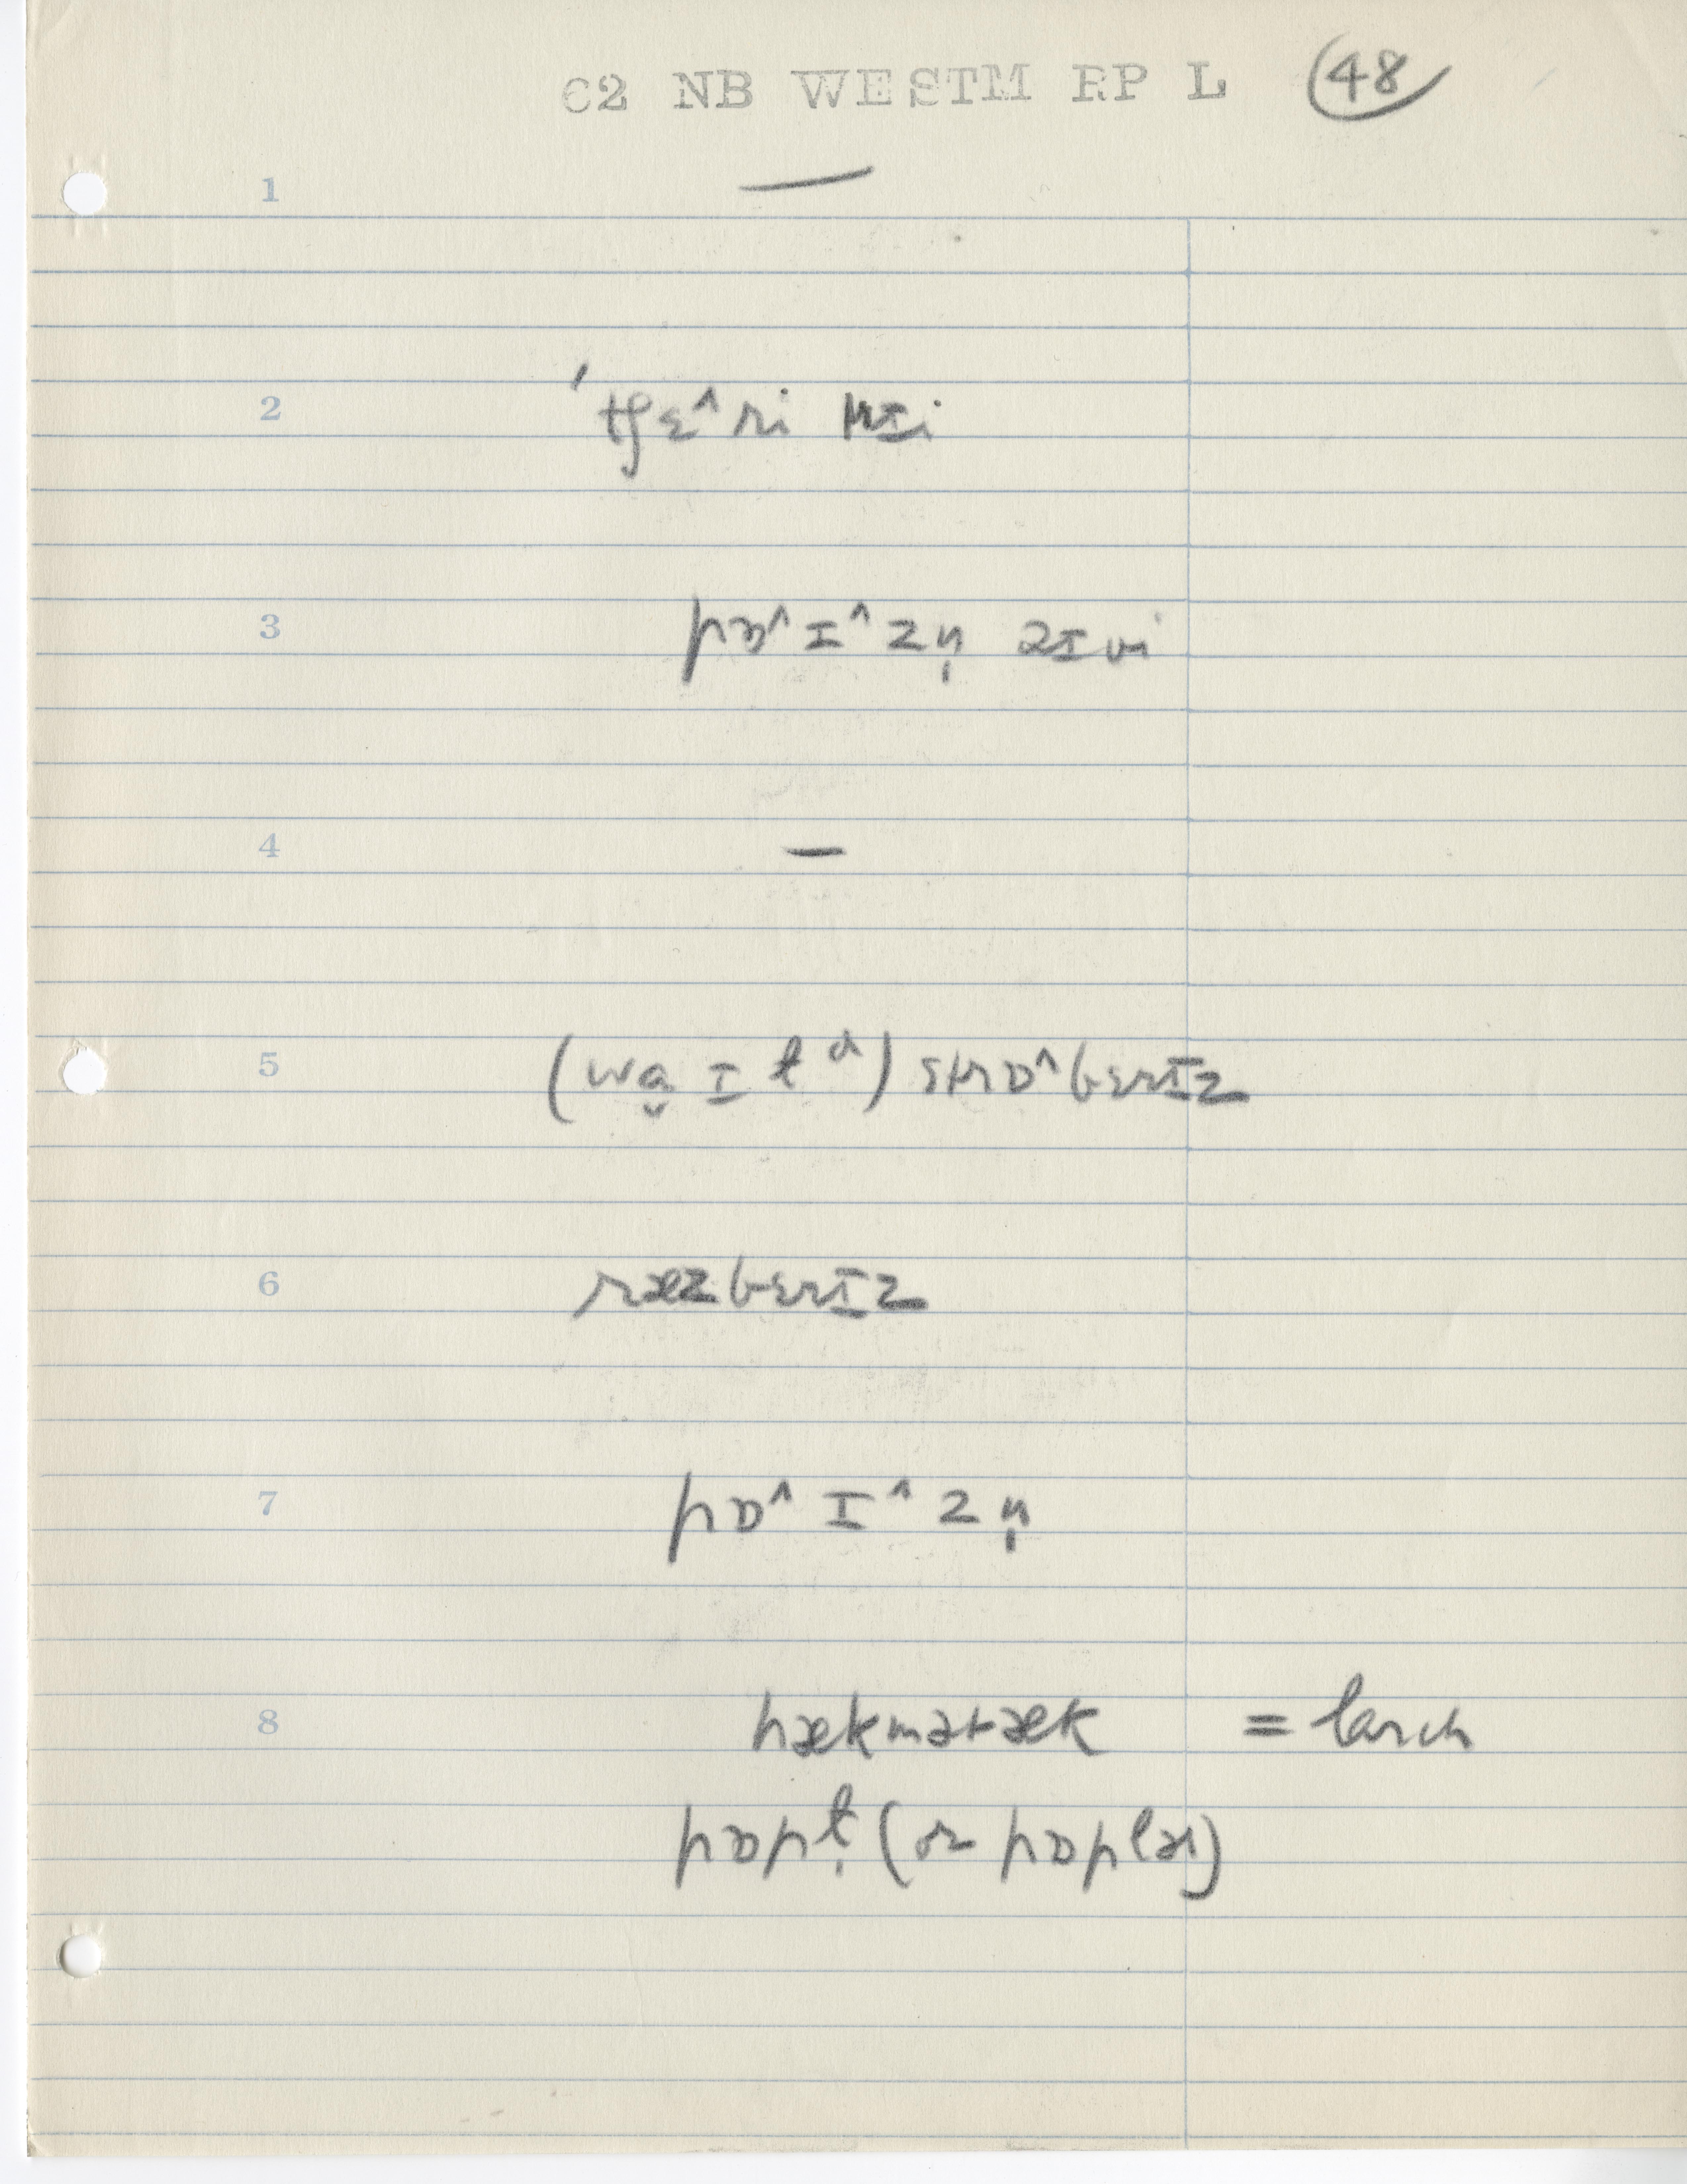 62 NB WESTM RP L (48)
1 —
2 ˈtʃɛ^ri trɪi
3 pɒ^ɪ^zn̩ aɪvi
4 —
5 (wa̬ɪtᵈ) strɒ^bɛrɪz
6 ræzbɛrɪz
7 pɒ^ɪ^zn̩
8 hækmətæk = larch
pɒpɫ̩ (or pɒpləɹ)